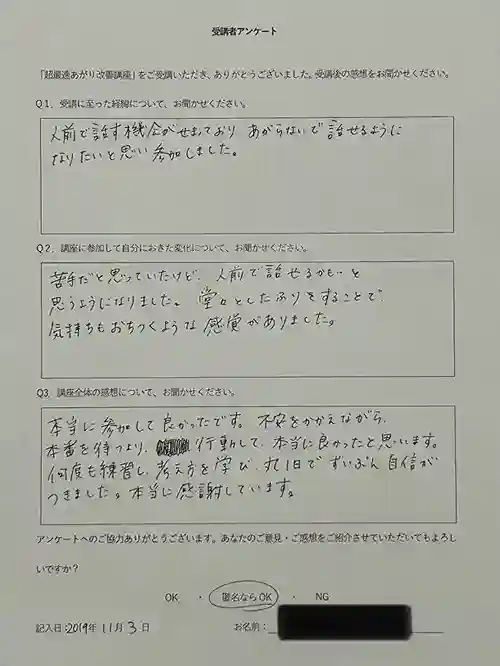 受講者アンケート
「超最速あがり改善講座」をご受講いただき、ありがとうございました。受講後の感想をお聞かせください。
Q1．受講に至った経緯について、お聞かせください。
人前で話す機会がせまっており あがらないで話せるように
なりたいと思い参加しました。
Q2．講座に参加して自分におきた変化について、お聞かせください。
苦手だと思っていたけど、人前で話せるかも…と
思うようになりました。堂々としたふりをすることで
気持ちもおちつくような感覚がありました。
Q3．講座全体の感想について、お聞かせください。
本当に参加して良かったです。不安をかかえながら、
本番を待つより、行動して、本当に良かったと思います。
何度も練習し、考え方を学び、丸1日でずいぶん自信が
つきました。本当に感謝しています。
アンケートへのご協力ありがとうございます。あなたのご意見・ご感想をご紹介させていただいてもよろし
いですか？
OK ・ 匿名ならOK ・ NG
記入日：2019年 11月 3日 お名前：